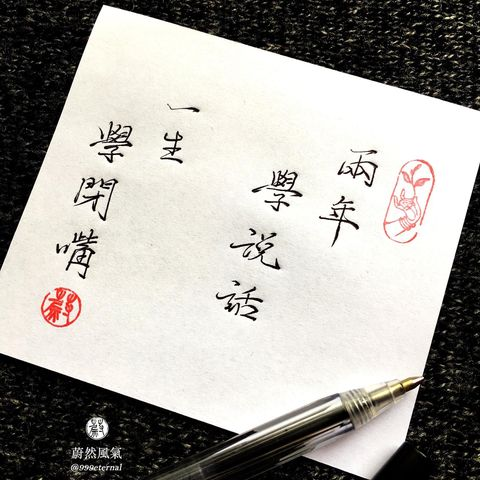 兩年
學說話
一生
學閉嘴
蔚
蔚
蔚然風氣
@999eternal